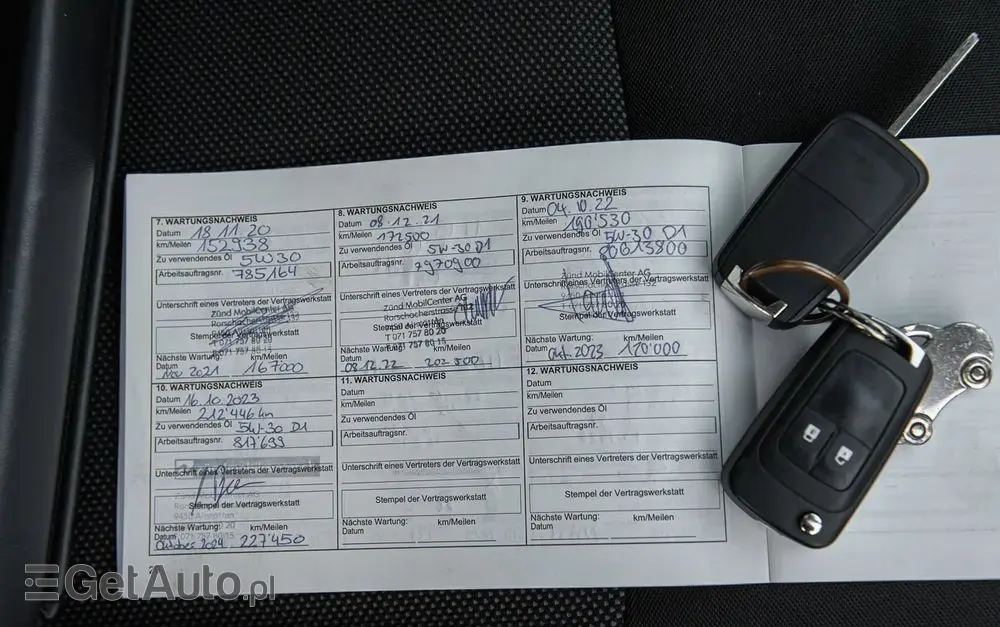 7. WARTUNGSNACHWEIS
Datum 18.11.20
km/Meilen 152938
Zu verwendendes Öl 5W30
Arbeitsauftragsnr. 785164
Unterschrift eines Vertreters der Vertragswerkstatt
Zünd MobilCenter AG
Stempel der Vertragswerkstatt
T 071 757 80 20
F 071 757 80 15
Nächste Wartung: km/Meilen
Datum Nov 2021 167000
8. WARTUNGSNACHWEIS
Datum 08.12.21
km/Meilen 172500
Zu verwendendes Öl 5W-30 D1
Arbeitsauftragsnr. 2970900
Unterschrift eines Vertreters der Vertragswerkstatt
Zünd MobilCenter AG
Rorschacherstrasse
Stempel der Vertragswerkstatt
T 071 757 80 20
F 071 757 80 15
Nächste Wartung: km/Meilen
Datum 08.12.22 202500
9. WARTUNGSNACHWEIS
Datum 04.10.22
km/Meilen
Zu verwendendes Öl 5W-30 D1
Arbeitsauftragsnr.
Zünd MobilCenter AG
Unterschrift eines Vertreters der Vertragswerkstatt
Stempel der Vertragswerkstatt
Nächste Wartung: km/Meilen
Datum Okt. 2023 120'000
10. WARTUNGSNACHWEIS
Datum 16.10.2023
km/Meilen 212'446 km
Zu verwendendes Öl 5W-30 D1
Arbeitsauftragsnr. 817'699
Unterschrift eines Vertreters der Vertragswerkstatt
Stempel der Vertragswerkstatt
Nächste Wartung: km/Meilen
Datum Oktober 2024 227'450
11. WARTUNGSNACHWEIS
Datum
km/Meilen
Zu verwendendes Öl
Arbeitsauftragsnr.
Unterschrift eines Vertreters der Vertragswerkstatt
Stempel der Vertragswerkstatt
Nächste Wartung: km/Meilen
Datum
12. WARTUNGSNACHWEIS
Datum
km/Meilen
Zu verwendendes Öl
Arbeitsauftragsnr.
Unterschrift eines Vertreters der Vertragswerkstatt
Stempel der Vertragswerkstatt
Nächste Wartung: km/Meilen
Datum
GetAuto.pl